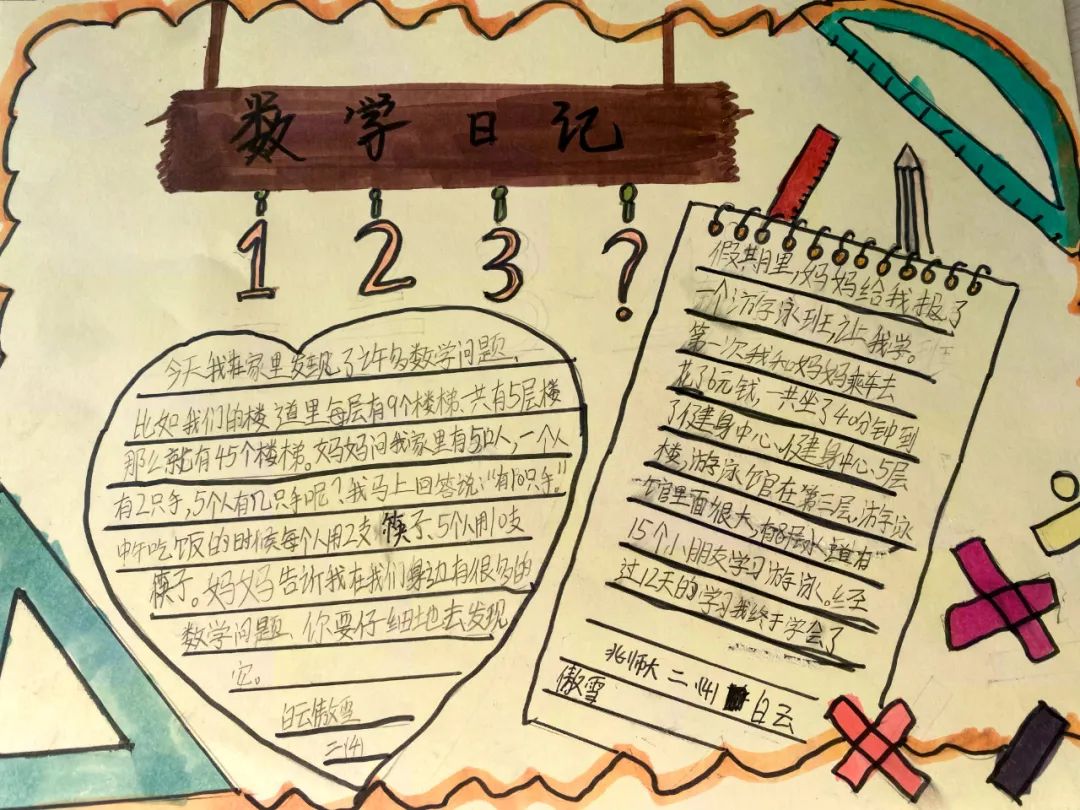 数学日记
1 2 3 ?
今天我在家里发现了许多数学问题,
比如我们的楼道里每层有9个楼梯、共有5层楼
那么就有45个楼梯。妈妈问我家里有5口人,一个人
有2只手,5个人有几只手呢?我马上回答说:"有10只手。"
中午吃饭的时候每个人用2支筷子、5个人用10支
筷子。妈妈告诉我在我们身边有很多的
数学问题、你要仔细地去发现
它。
白云傲雪
二(4)
假期里,妈妈给我报了
一个游泳班,让我学。
第一次我和妈妈乘车去
花了6元钱,一共坐了40分钟到
了健身中心、健身中心、5层
楼,游泳馆在第三层,游泳
馆里面很大,有8条水道有
15个小朋友学习游泳。经
过12天的学习我终于学会了
北师大二(4)白云
傲雪